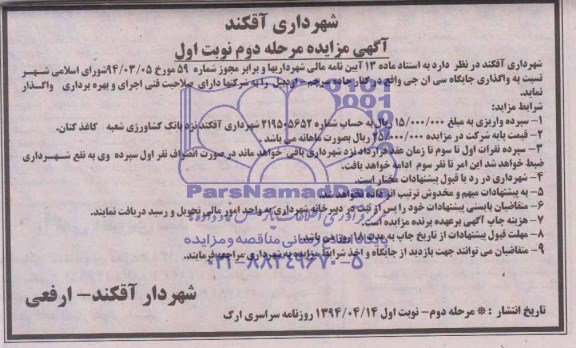 شهرداری آقکند
آگهی مزایده مرحله دوم نوبت اول
شهرداری آقکند در نظر دارد به استناد ماده ۱۳ آیین نامه مالی شهرداریها و برابر مجوز شماره ۵۹ مورخ ۹۴/۰۳/۰۵ شورای اسلامی شهر
نسبت به واگذاری جایگاه سی ان جی واقع در کنار جاده سرچم - اردبیل را به شرکتها دارای صلاحیت فنی اجرای و بهره برداری واگذار
نماید.
شرایط مزاید:
۱- سپرده واریزی به مبلغ ۱۵/۰۰۰/۰۰۰ ریال به حساب شماره ۲۱۹۵۰۵۶۵۲ شهرداری آقکند نزد بانک کشاورزی شعبه کاغذ کنان.
۲- قیمت پایه شرکت در مزایده ۲۵/۰۰۰/۰۰۰ ریال بصورت ماهانه می باشد
۳- سپرده نفرات اول تا سوم تا زمان عقد قرارداد نزد شهرداری باقی خواهد ماند در صورت انصراف نفر اول سپرده وی به نفع شهرداری
ضبط خواهد شد این امر تا نفر سوم ادامه خواهد یافت.
۴- شهرداری در رد یا قبول پیشنهادات مختار است.
۵- به پیشنهادات مبهم و مخدوش ترتیب اثر داده نخواهد شد.
۶- متقاضیان بایستی پیشنهادات خود را پس از ثبت در دبیرخانه شهرداری به واحد امور مالی تحویل و رسید دریافت نمایند.
۷- هزینه چاپ آگهی برعهده برنده مزایده است.
۸- مهلت قبول پیشنهادات از تاریخ چاپ به مدت ۱۸ روز می باشد.
۹- متقاضیان می توانند جهت بازدید از جایگاه و اخذ شرایط مزایده به شهرداری مراجعه فرمایند.
شهردار آقکند - ارفعی
تاریخ انتشار : * مرحله دوم - نوبت اول ۱۳۹۴/۰۴/۱۴ روزنامه سراسری ارک
ParsNamadData
پایگاه اطلاع رسانی مناقصه و مزایده
۰۲۱-۸۸۳۴۹۶۷۰-۵